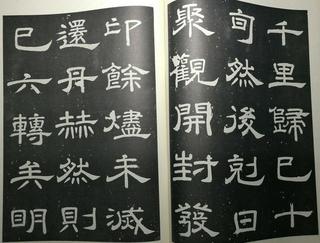 千里歸巳十
旬然後剋日
聚觀開封發
印餘燼未滅
還丹赫然則
巳六轉矣明